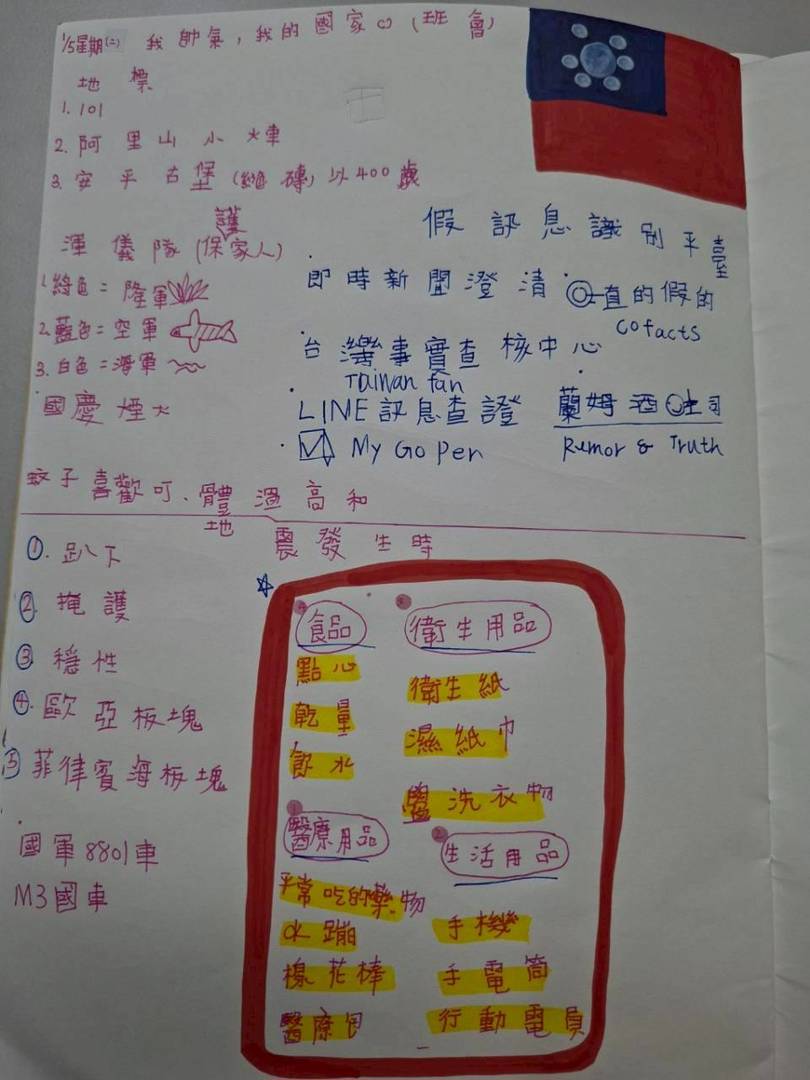 1/5星期(二) 我帥氣,我的國家(班會)
地標
1. 101
2. 阿里山小火車
3. 安平古堡(紅色磚)以400歲
渾儀隊(保護家人)
1. 綠色=陸軍
2. 藍色=空軍
3. 白色=海軍
國慶煙火
假訊息識別平臺
即時新聞澄清
真的假的
cofacts
台灣事實查核中心
Taiwan fan
LINE訊息查證
蘭姆酒吐司
My Go Pen
Rumor & Truth
蚊子喜歡叮、體溫高和
地震發生時
①. 趴下
②. 掩護
③. 穩性
④. 歐亞板塊
⑤ 菲律賓海板塊
國軍8801車
M3國車
食品
點心
乾量
飲水
衛生用品
衛生紙
濕紙巾
盥洗衣物
1
醫療用品
平常吃的藥物
ok蹦
棉花棒
醫療包
2
生活用品
手機
手電筒
行動電員